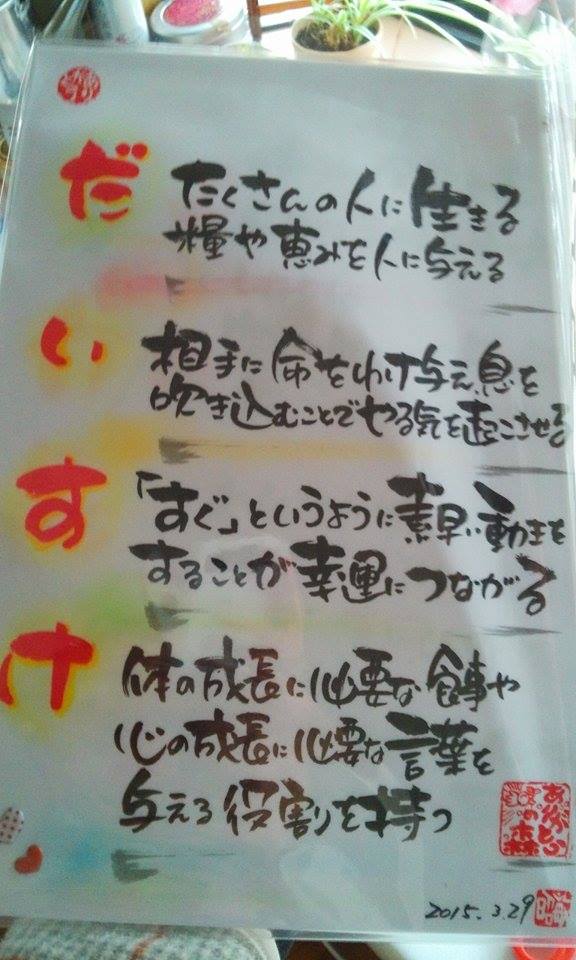 だ
たくさんの人に生きる
糧や恵みを人に与える
い
相手に命をわけ与え息を
吹き込むことでやる気を起こさせる
す
「すぐ」というように素早い動きを
することが幸運につながる
け
体の成長に必要な食事や
心の成長に必要な言葉を
与える役割を持つ
ありがとう
の森
2015.3.29